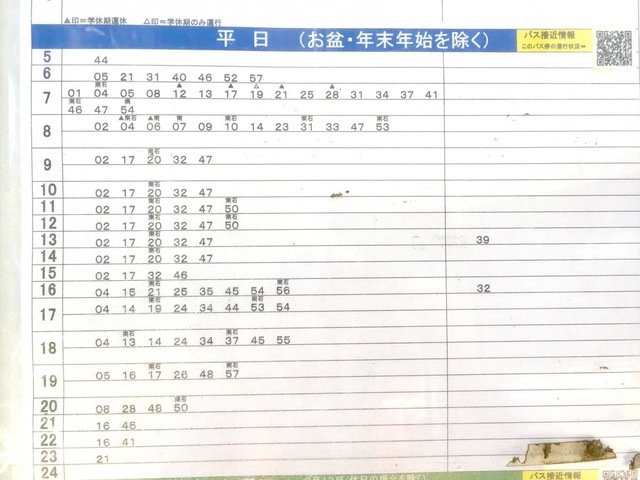 ▲印=学休期運休 △印=学休期のみ運行
平日 (お盆・年末年始を除く)
バス接近情報
このバス停の運行状況⇒
5 44
6 05 21 31 40 46 52 57
南石 ▲ ▲ △ ▲ ▲
7 01 04 05 08 12 13 17 19 21 25 28 31 34 37 41
南石
46 47 54
▲南石 ▲南 南 南石 南石 南石
8 02 04 06 07 09 10 14 23 31 33 47 53
9 02 17 20 32 47
南石
10 02 17 20 32 47
南石 南石
11 02 17 20 32 47 50
南石 南石
12 02 17 20 32 47 50
南石
13 02 17 20 32 47 39
南石
14 02 17 20 32 47
15 02 17 32 46
南石 南石
16 04 15 21 25 35 45 54 56 32
南石 南石
17 04 14 19 24 34 44 53 54
南石 南石
18 04 13 14 24 34 37 45 55
南石 南石
19 05 16 17 26 48 57
20 08 28 48 50
21 16 46
22 16 41
23 21
24
バス接近情報